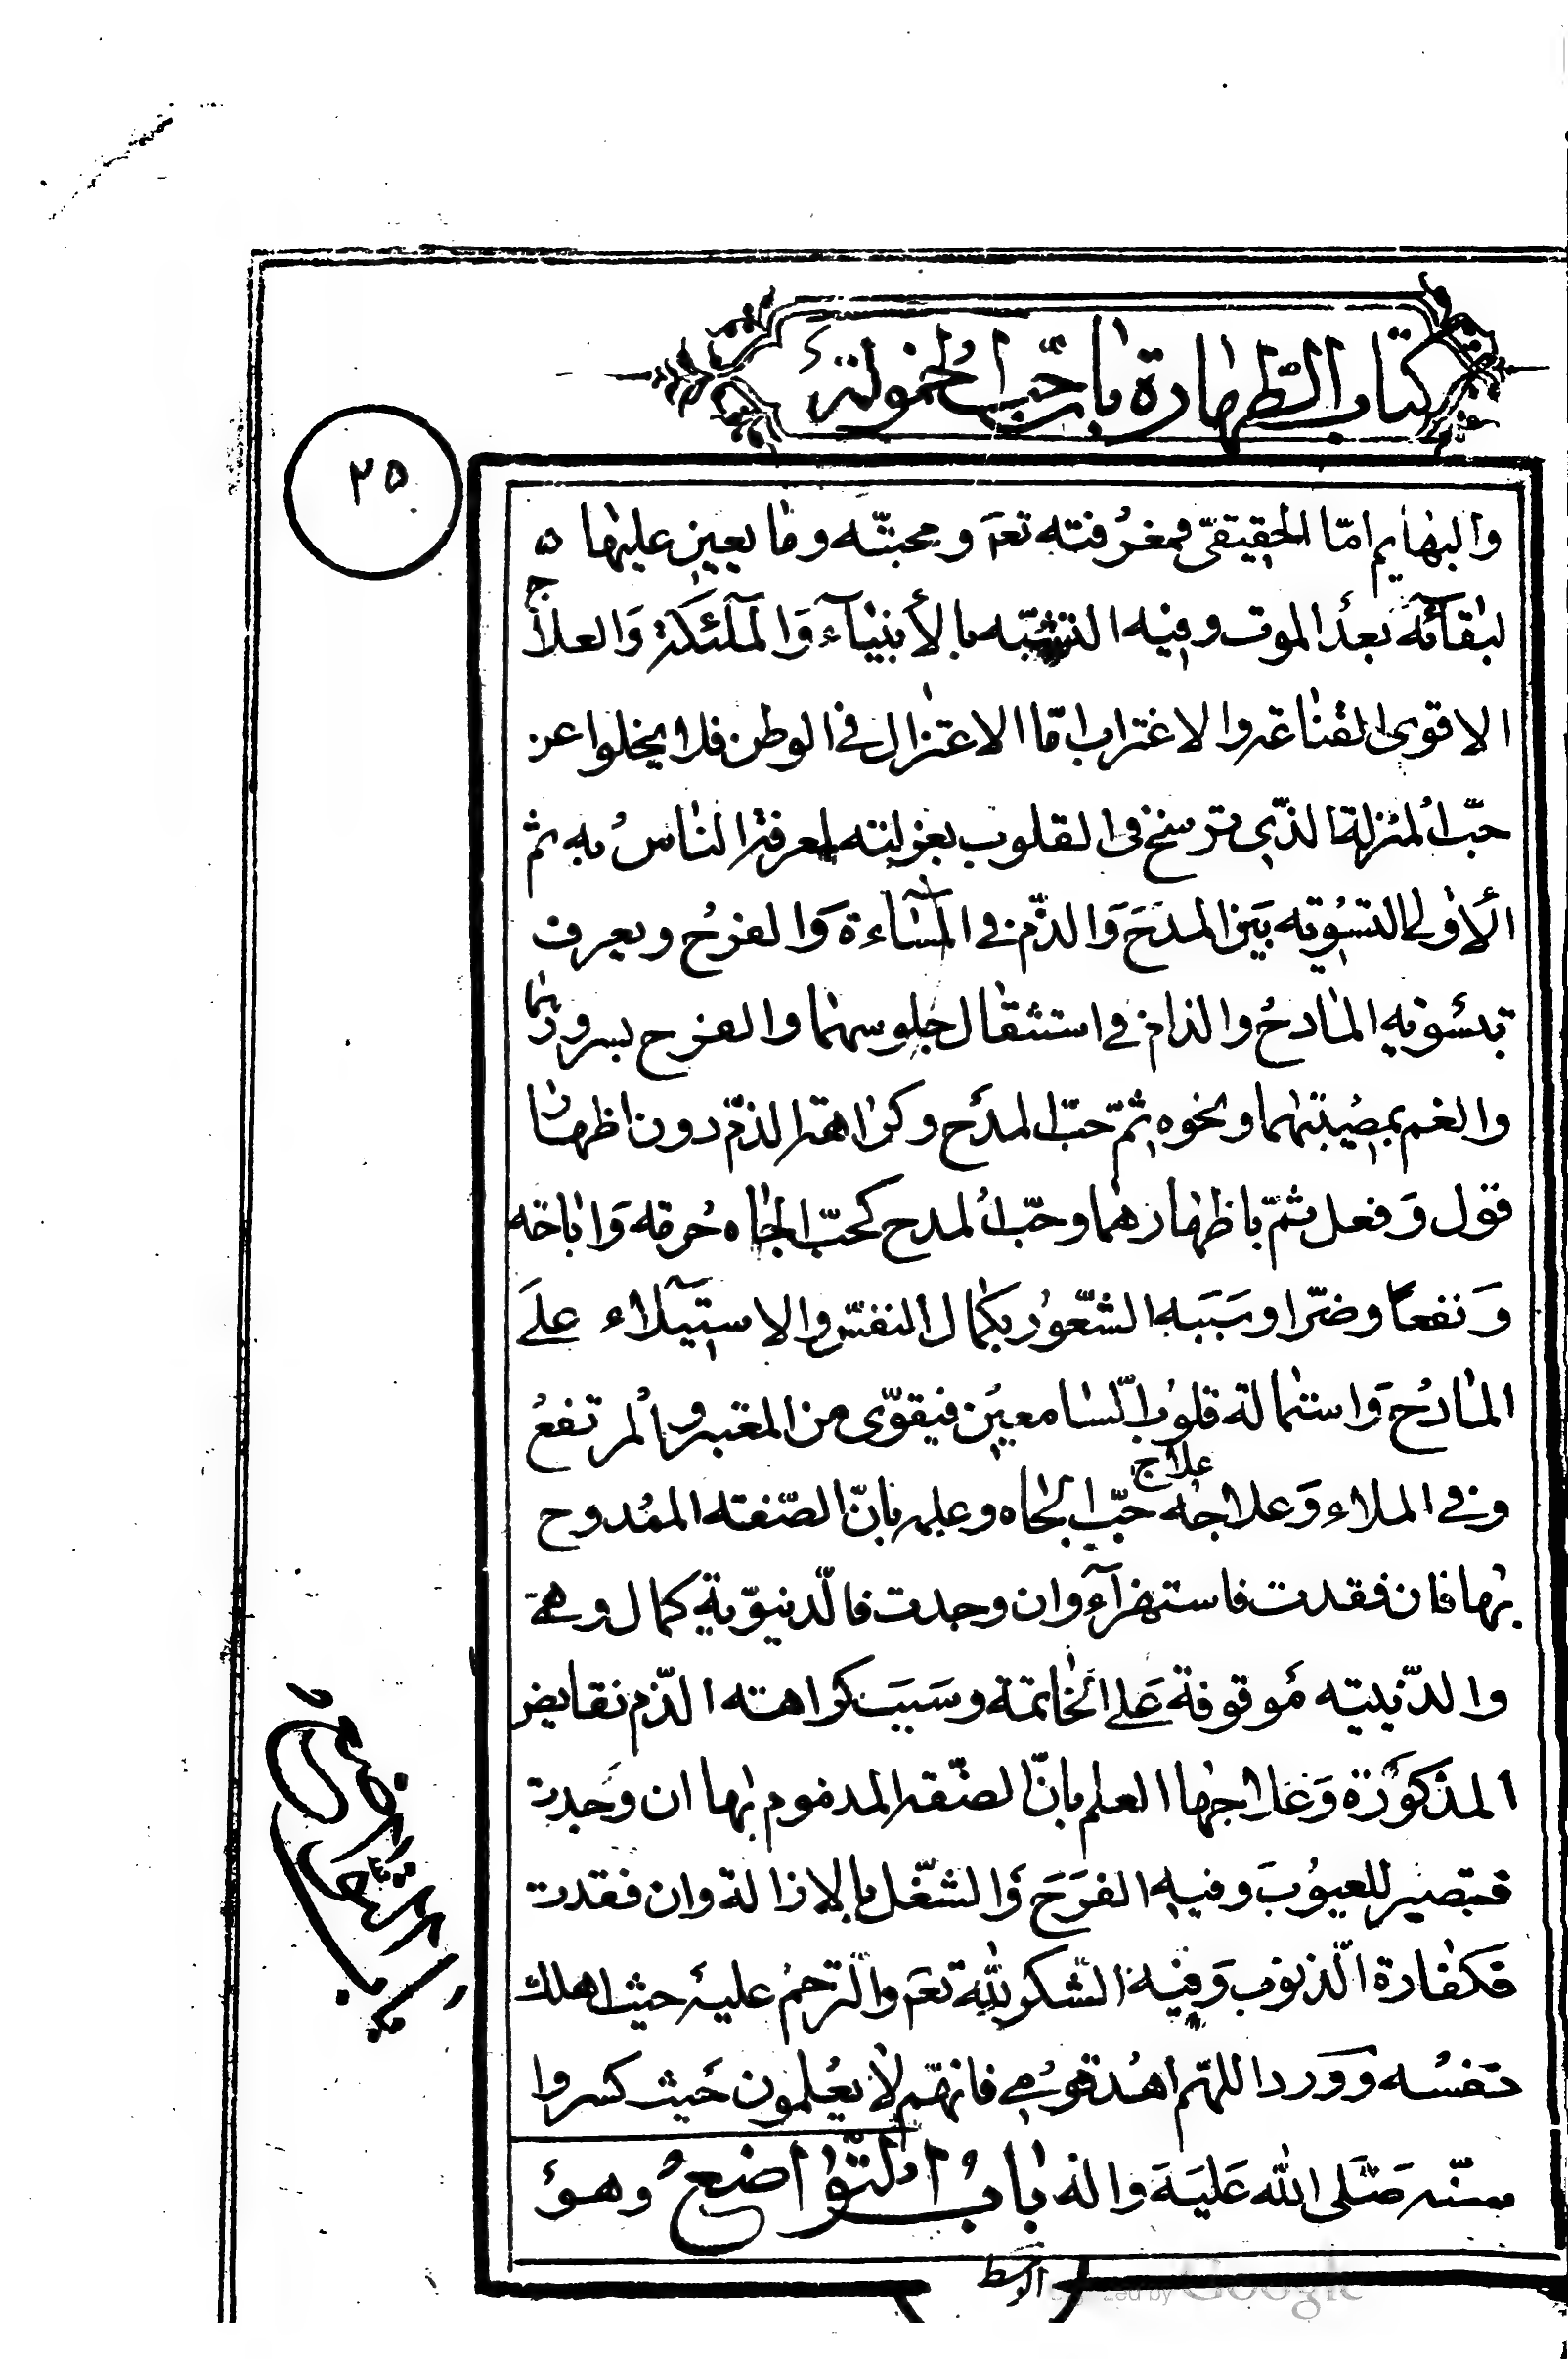 كتاب الطهارة باب حب الخمولة
٢٥
والبهايم امّا الحقيقىّ فمعرفته تعم ومحبتّه وما يعين عليها
لبقائه بعد الموت وفيه التشبّه بالأنبيآء وَالملٓئكة وَالعلاج
الاقوى القناعة والاغتراب امّا الاعتزال فى الوطن فلا يخلوا عن
حبّ المنزلة الذّى ترسخ فى القلوب بعزلته لمعرفة الناس به ثم
الأولى التسوية بَين المدَحَ وَالذّم فى المسٓاءة وَالفرح ويعرف
بتسوية المادح والذام فى استثقال جلوسهما والفرح بسرورهما
والغم بمصيبتهما ونحوه ثمّ حبّ المدَح وكراهة الذمّ دون اظهار
قول وَفعل ثمّ باظهارهما وحبّ المدح كحبّ الجاه حرمة وَاباحة
وَنفعًا وضرّا وسَبَبه الشّعور بكمال النفس والاستيلاء علىَ
المادح وَاستمالة قلوب السّامعين فيقوّى من المعتبر والمرتفع
وفى الملاء وَعلاجه علاج حبّ الجاه وعلمه بانّ الصّفة الممدوح
بها فان فقدت فاستهزآء وان وجدت فالدّنيوّية كمال وهمىّ
والدّينيّة موقوفة عَلى الخاتمة وسَبَب كراهته الذّم نقايض
المذكورَة وَعلاجها العلم بانّ الصّفة المذموم بها ان وجدت
فتبصير للعيوُب وفيه الفرَحَ وَالشغّل بالازالة وان فقدت
فكفارة الذّنوب وَفيه الشّكر للّه تعم والترّحم عليه حيث اهلك
نفسُه وَورد اللهّم اهد قومى فانهّم لا يعلمون حَيث كسروا
سنّه صَلّى اللّه عَليَه واله باب التوّاضع وهو
الوسط